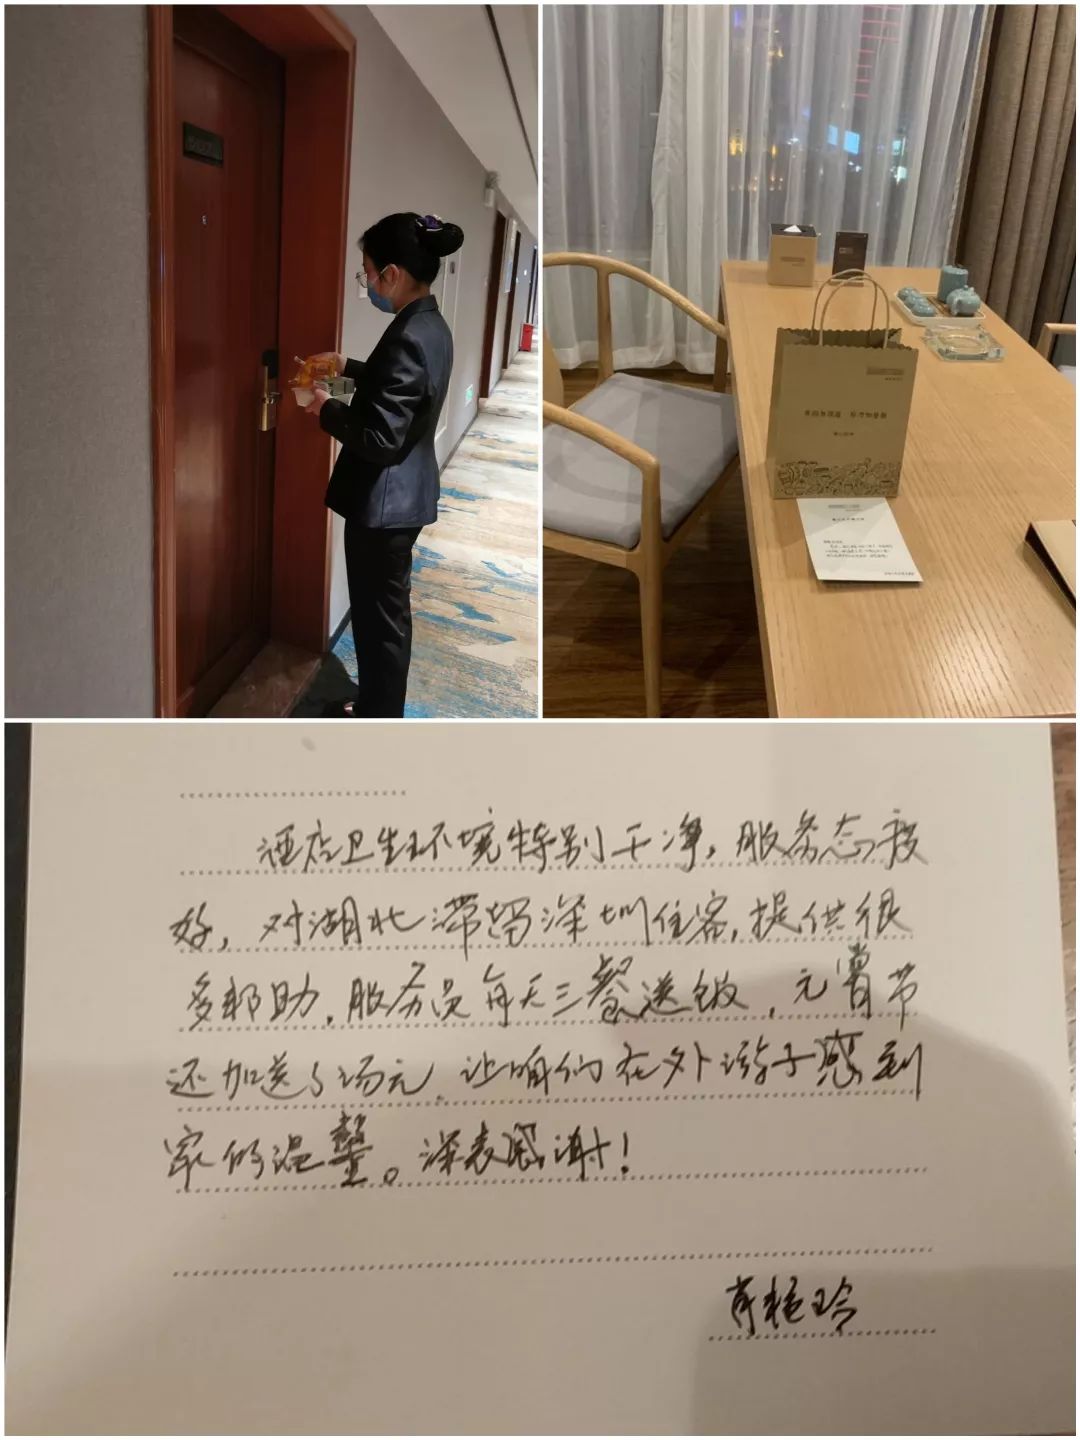 酒店卫生环境特别干净，服务态度
好，对湖北滞留深圳住客，提供很
多帮助，服务员每天三餐送饭，元宵节
还加送了汤元，让咱们在外游子感到
家的温馨。深表感谢！